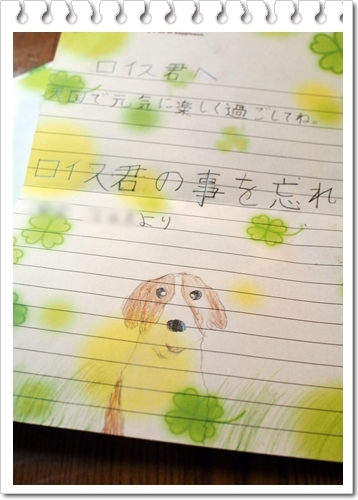 ロイス君へ
天国で元気に楽しく過ごしてね。
ロイス君の事を忘れ
より